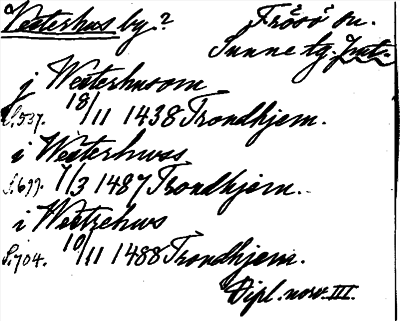 Vesterhus by? Frösö sn.
Sunne tg. Jmtl.
j Westerhusom
S. 537. 18/11 1438 Trondhjem.
i Westerhuss
S. 699. 7/3 1487 Trondhjem.
i Westrehus
S. 704. 10/11 1488 Trondhjem.
Dipl. norv. III.